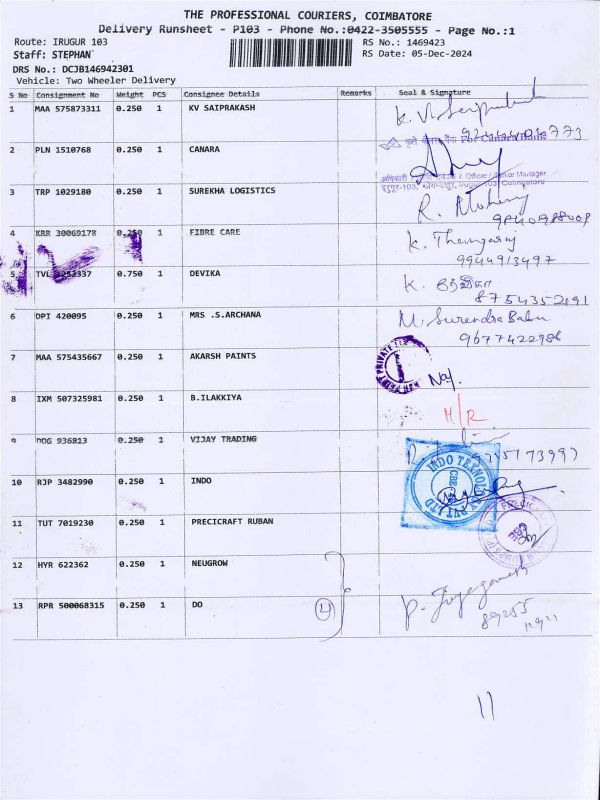 THE PROFESSIONAL COURIERS, COIMBATORE
Delivery Runsheet - P103 - Phone No.:0422-3505555 - Page No.:1
Route: IRUGUR 103 RS No.: 1469423
Staff: STEPHAN RS Date: 05-Dec-2024
DRS No.: DCJB146942301
Vehicle: Two Wheeler Delivery
S No Consignment No Weight PCS Consignee Details Remarks Seal & Signature
1 MAA 575873311 0.250 1 KV SAIPRAKASH
2 PLN 1510768 0.250 1 CANARA
Officer / Senior Manager,
Irugur-103, Coimbatore
3 TRP 1029180 0.250 1 SUREKHA LOGISTICS
9840988009
4 KRR 30069178 0.250 1 FIBRE CARE K. Thangaraj
9944913497
5 TVL 0.750 1 DEVIKA K.
8754352191
6 DPI 420095 0.250 1 MRS .S.ARCHANA M. Surendra Babu
9677422986
7 MAA 575435667 0.250 1 AKARSH PAINTS
8 IXM 507325981 0.250 1 B.ILAKKIYA H/R
9 DDG 936813 0.250 1 VIJAY TRADING
10 RJP 3482990 0.250 1 INDO INDO TEKNOLOGY PVT LTD
CBE
11 TUT 7019230 0.250 1 PRECICRAFT RUBAN
12 HYR 622362 0.250 1 NEUGROW
13 RPR 500068315 0.250 1 DO 4 P. Jeyaganesh
89255
11911
11